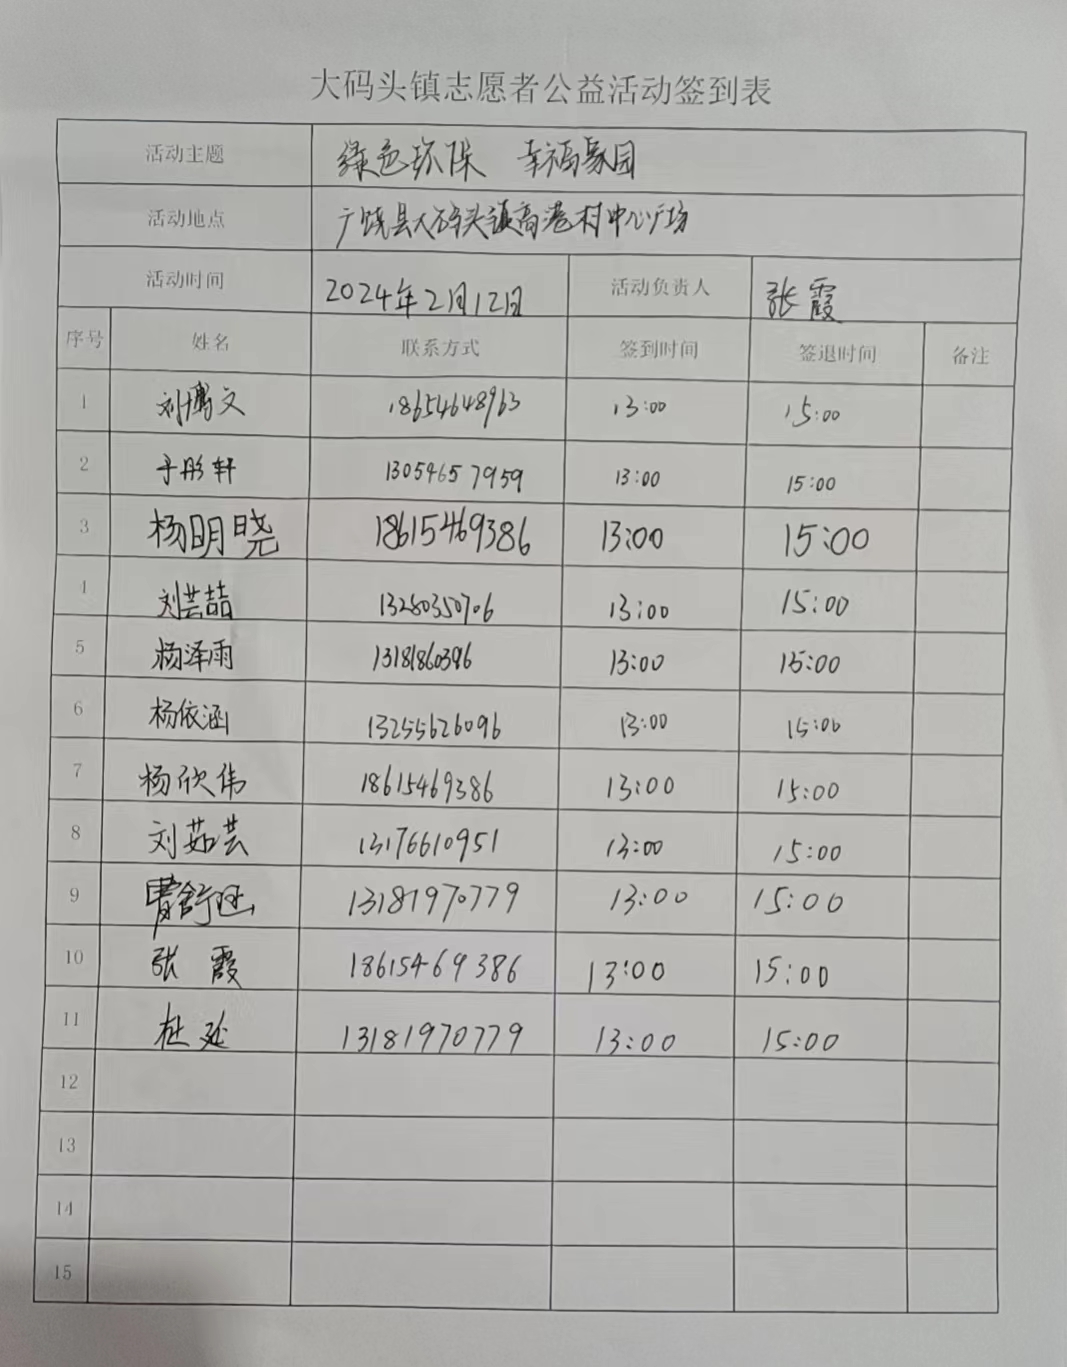 大码头镇志愿者公益活动签到表
活动主题 绿色环保 幸福家园
活动地点 广饶县大码头镇高港村中心广场
活动时间 2024年2月12日 活动负责人 张霞
序号 姓名 联系方式 签到时间 签退时间 备注
1 刘博文 18654648963 13:00 15:00
2 于彤轩 13054657959 13:00 15:00
3 杨明晓 18615469386 13:00 15:00
4 刘芸喆 13280350706 13:00 15:00
5 杨泽雨 13181860396 13:00 15:00
6 杨依涵 13255626096 13:00 15:00
7 杨欣伟 18615469386 13:00 15:00
8 刘茹芸 13176610951 13:00 15:00
9 曹舒 13181970779 13:00 15:00
10 张霞 18615469386 13:00 15:00
11 杜延 13181970779 13:00 15:00
12
13
14
15